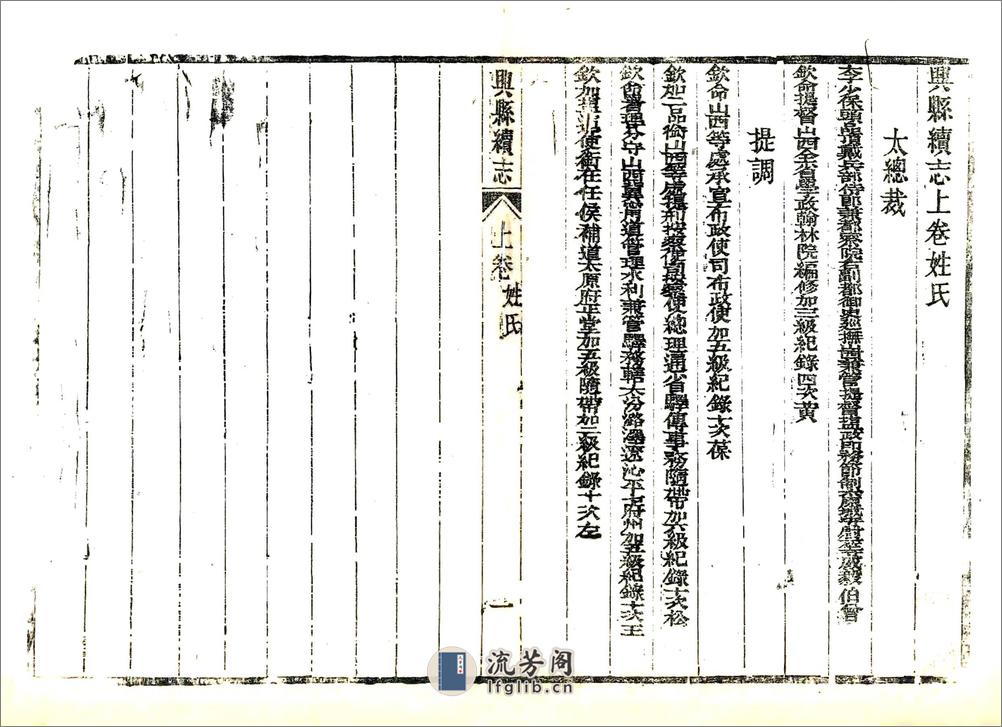 興縣續志上卷姓氏
太總裁
太子少保頭品頂戴兵部侍郎兼都察院右副都御史巡撫山西兼管提督鹽政印務節制太原城守尉等威毅伯曾
欽命提督山西全省學政翰林院編修加三級紀錄四次黃
提調
欽命山西等處承宣布政使司布政使加五級紀錄十次葆
欽加二品銜山西等處提刑按察使司按察使總理通省驛傳事務隨帶加六級紀錄十次松
欽命署理分守山西冀甯道管理水利兼管驛務轄太汾潞澤遼沁平七府州加五級紀錄十次王
欽加運使銜在任候補道太原府正堂加五級隨帶加二級紀錄十次左
興縣續志
上卷 姓氏
一
流芳阁
lfglib.cn